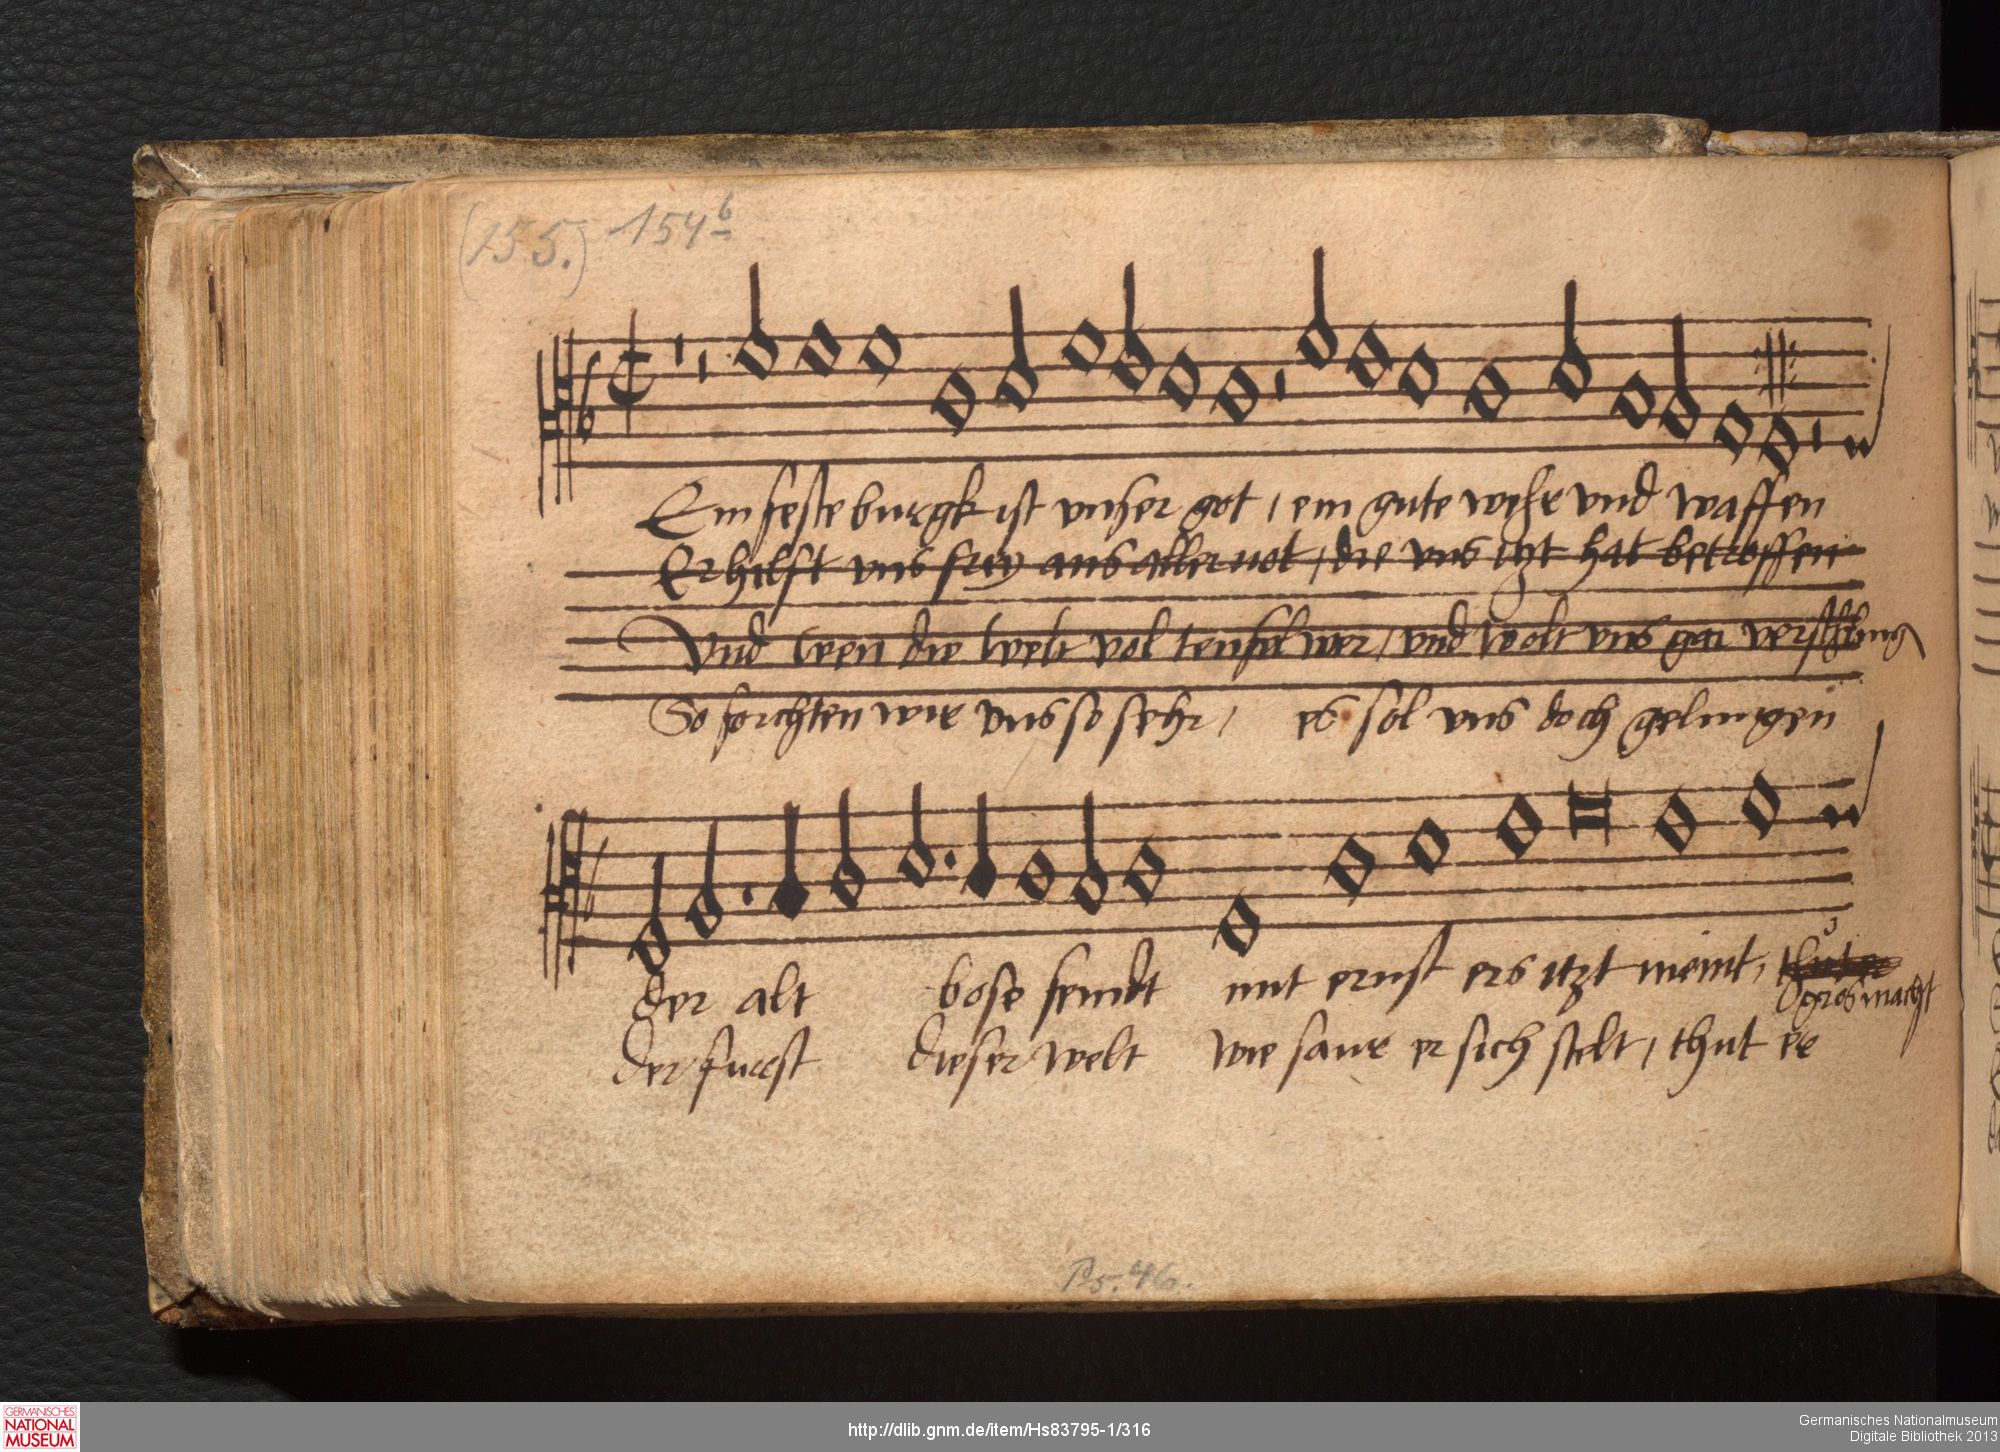 (155.) 154b
Ein feste burgk ist vnser got / ein gute wehr vnd waffen
Er hilft vns frey aus aller not / die vns itzt hat betroffen
Vnd wen die welt vol teufel wer / vnd wolt vns gar verschling
So forchten wir vns so sehr / es sol vns doch gelingen
der alt bose feindt mit ernst ers itzt meint /
gros macht
der furst dieser welt wie saur er sich stelt / thut er
Ps. 46.
GERMANISCHES
NATIONAL
MUSEUM
http://dlib.gnm.de/item/Hs83795-1/316
Germanisches Nationalmuseum
Digitale Bibliothek 2013